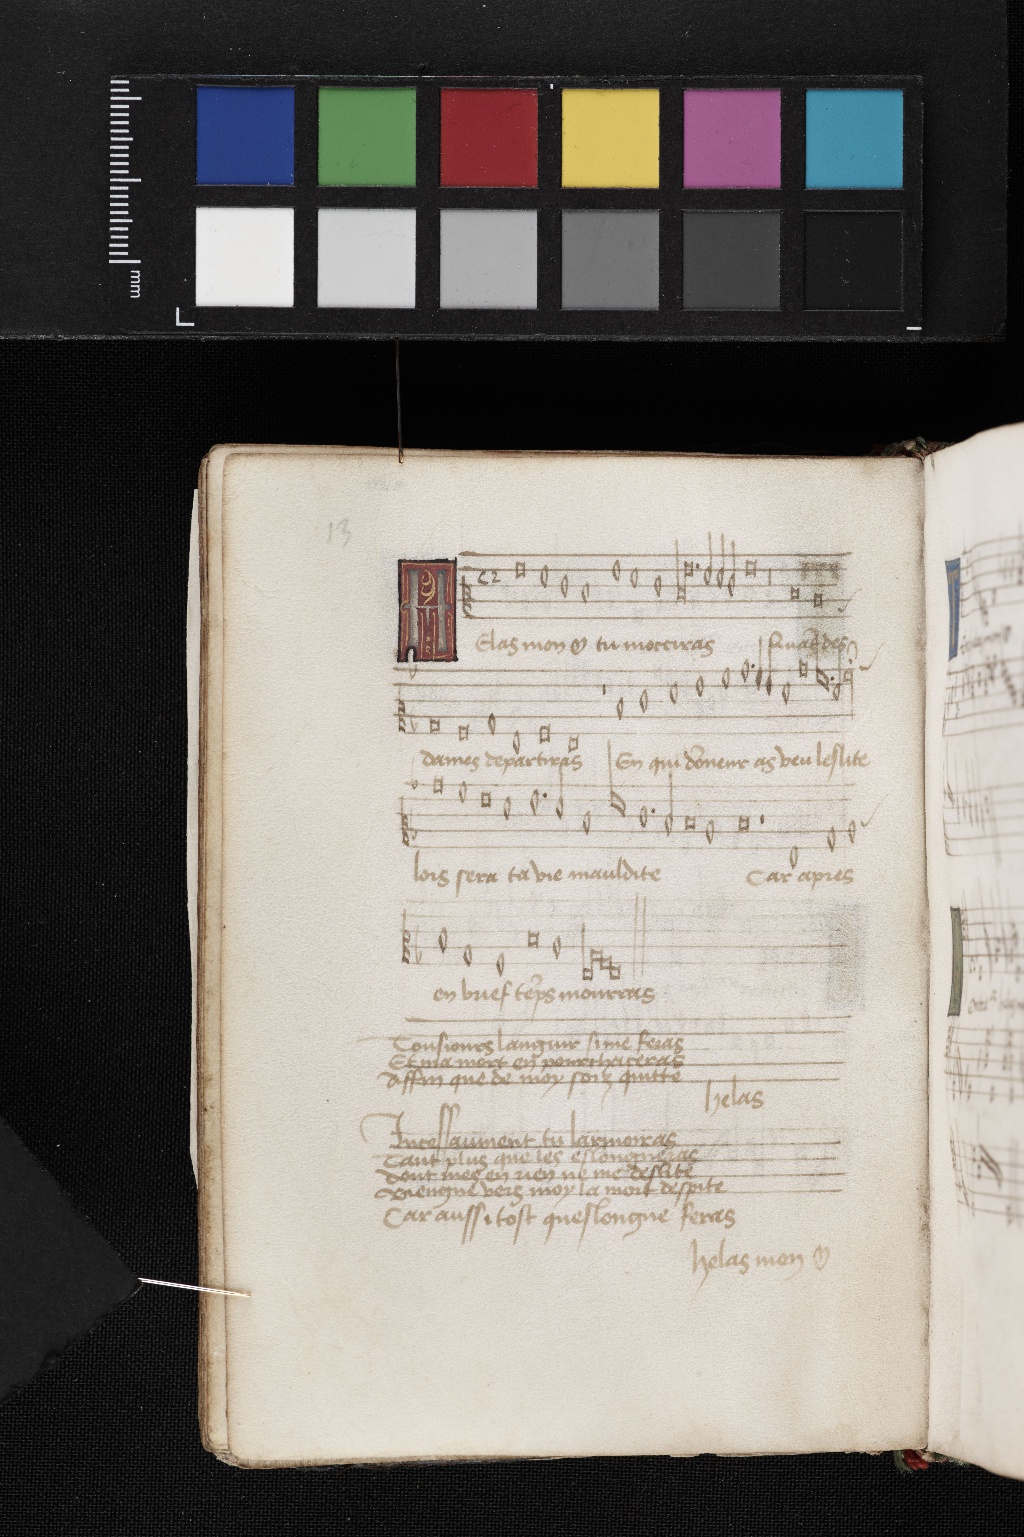 mm
13
C2
Elas mon ♡ tu mocciras
dames departiras En qui doneur as veu leslite
lors sera ta vie mauldite Car apres
en brief temps mourras
Tousiours languir si me feras
Et ma mort en pourchaceras
Affin que de moy soiz quitte
helas
Incessaument tu larmoiras
Tant plus que les eslongneras
dont mes en rien ne me deslite
Viengne vers moy la mort despite
Car aussi tost queslongne seras
helas mon ♡